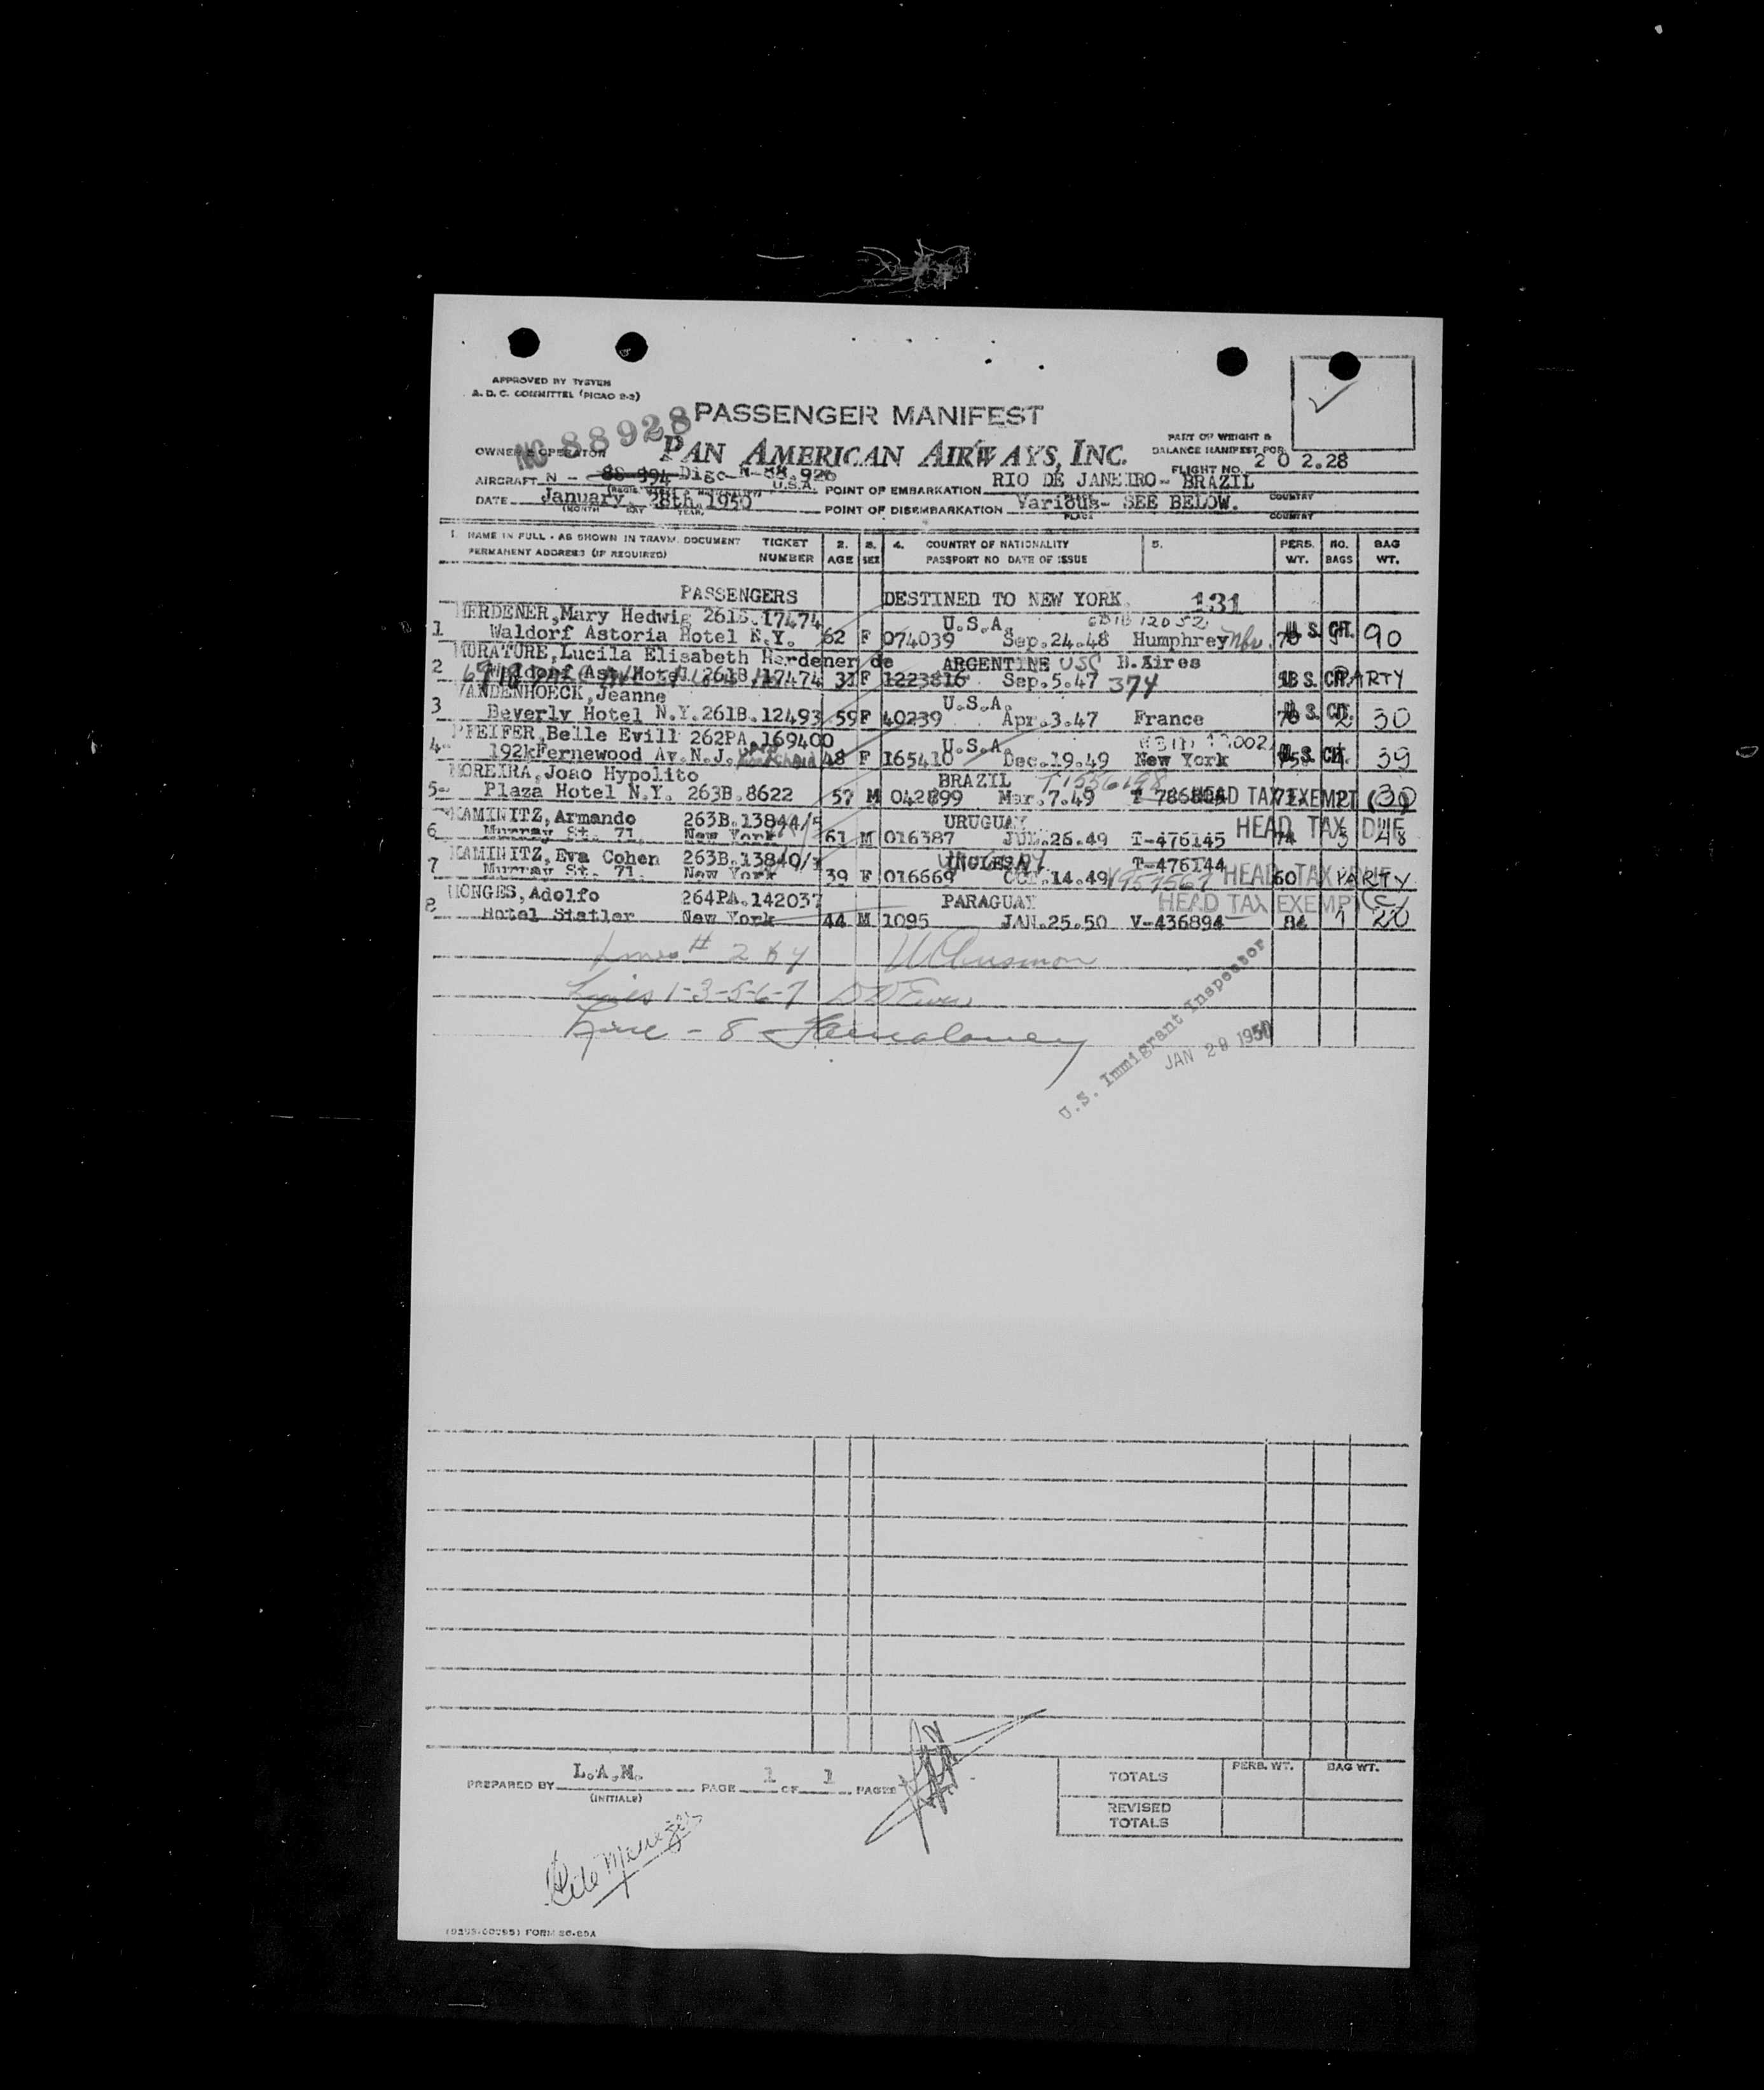 APPROVED BY
A. D. C. COMMITTEE (PICAO 2-2)
NO 88928
PASSENGER MANIFEST
PAN AMERICAN AIRWAYS, INC.
OWNER & OPERATOR
PART OF WEIGHT &
BALANCE MANIFEST FOR
FLIGHT NO. 202.28
AIRCRAFT N - 88-894-Disc-N-88.928 U.S.A. POINT OF EMBARKATION RIO DE JANEIRO- BRAZIL
COUNTRY
DATE January 28th 1950 POINT OF DISEMBARKATION Various- SEE BELOW.
MONTH DAY YEAR PLACE COUNTRY
1. NAME IN FULL - AS SHOWN IN TRAVEL DOCUMENT TICKET 2. 3. 4. COUNTRY OF NATIONALITY 5. PERS. NO. BAG
PERMANENT ADDRESS (IF REQUIRED) NUMBER AGE SEX PASSPORT NO DATE OF ISSUE WT. BAGS WT.
PASSENGERS DESTINED TO NEW YORK. 131
HERDENER, Mary Hedwig 261B.17474 U.S.A.
1 Waldorf Astoria Hotel N.Y. 62 F 074039 Sep.24.48 Humphrey U.S. CIT. 90
MURATURE, Lucila Elisabeth Herdener de ARGENTINE USC B.Aires
2 Waldorf Ast. Hotel 261B.17474 31 F 1223816 Sep.5.47 374 U.S. CIT. PARTY
VANDENHOECK, Jeanne U.S.A.
3 Beverly Hotel N.Y. 261B.12493 59 F 40239 Apr.3.47 France U.S. CIT. 30
PFEIFER, Belle Evill 262PA.169400 U.S.A.
4 192kFernewood Av. N.J. 48 F 165410 Dec.19.49 New York U.S. CIT. 39
MOREIRA, Joao Hypolito BRAZIL T1556198
5 Plaza Hotel N.Y. 263B.8622 57 M 042899 Mar.7.49 HEAD TAX EXEMPT
KAMINITZ, Armando 263B.13844/5 URUGUAY HEAD TAX DUE
6 Murray St. 71. New York 61 M 016387 JUL.26.49 T-476145 74 3 48
KAMINITZ, Eva Cohen 263B.13840/1 T-476144
7 Murray St. 71. New York 39 F 016669 OCT.14.49 V957567 HEAD TAX 60 PARTY
MONGES, Adolfo 264PA.142037 PARAGUAY HEAD TAX EXEMPT (C)
8 Hotel Statler New York 44 M 1095 JAN.25.50 V-436894 84 1 20
Lines # 2 & 4
Lines 1-3-5-6-7
Line - 8
U.S. Immigrant Inspector
JAN 29 1950
PREPARED BY L.A.M. PAGE 1 OF 1 PAGES
(INITIALS)
PERS. WT. BAG WT.
TOTALS
REVISED
TOTALS